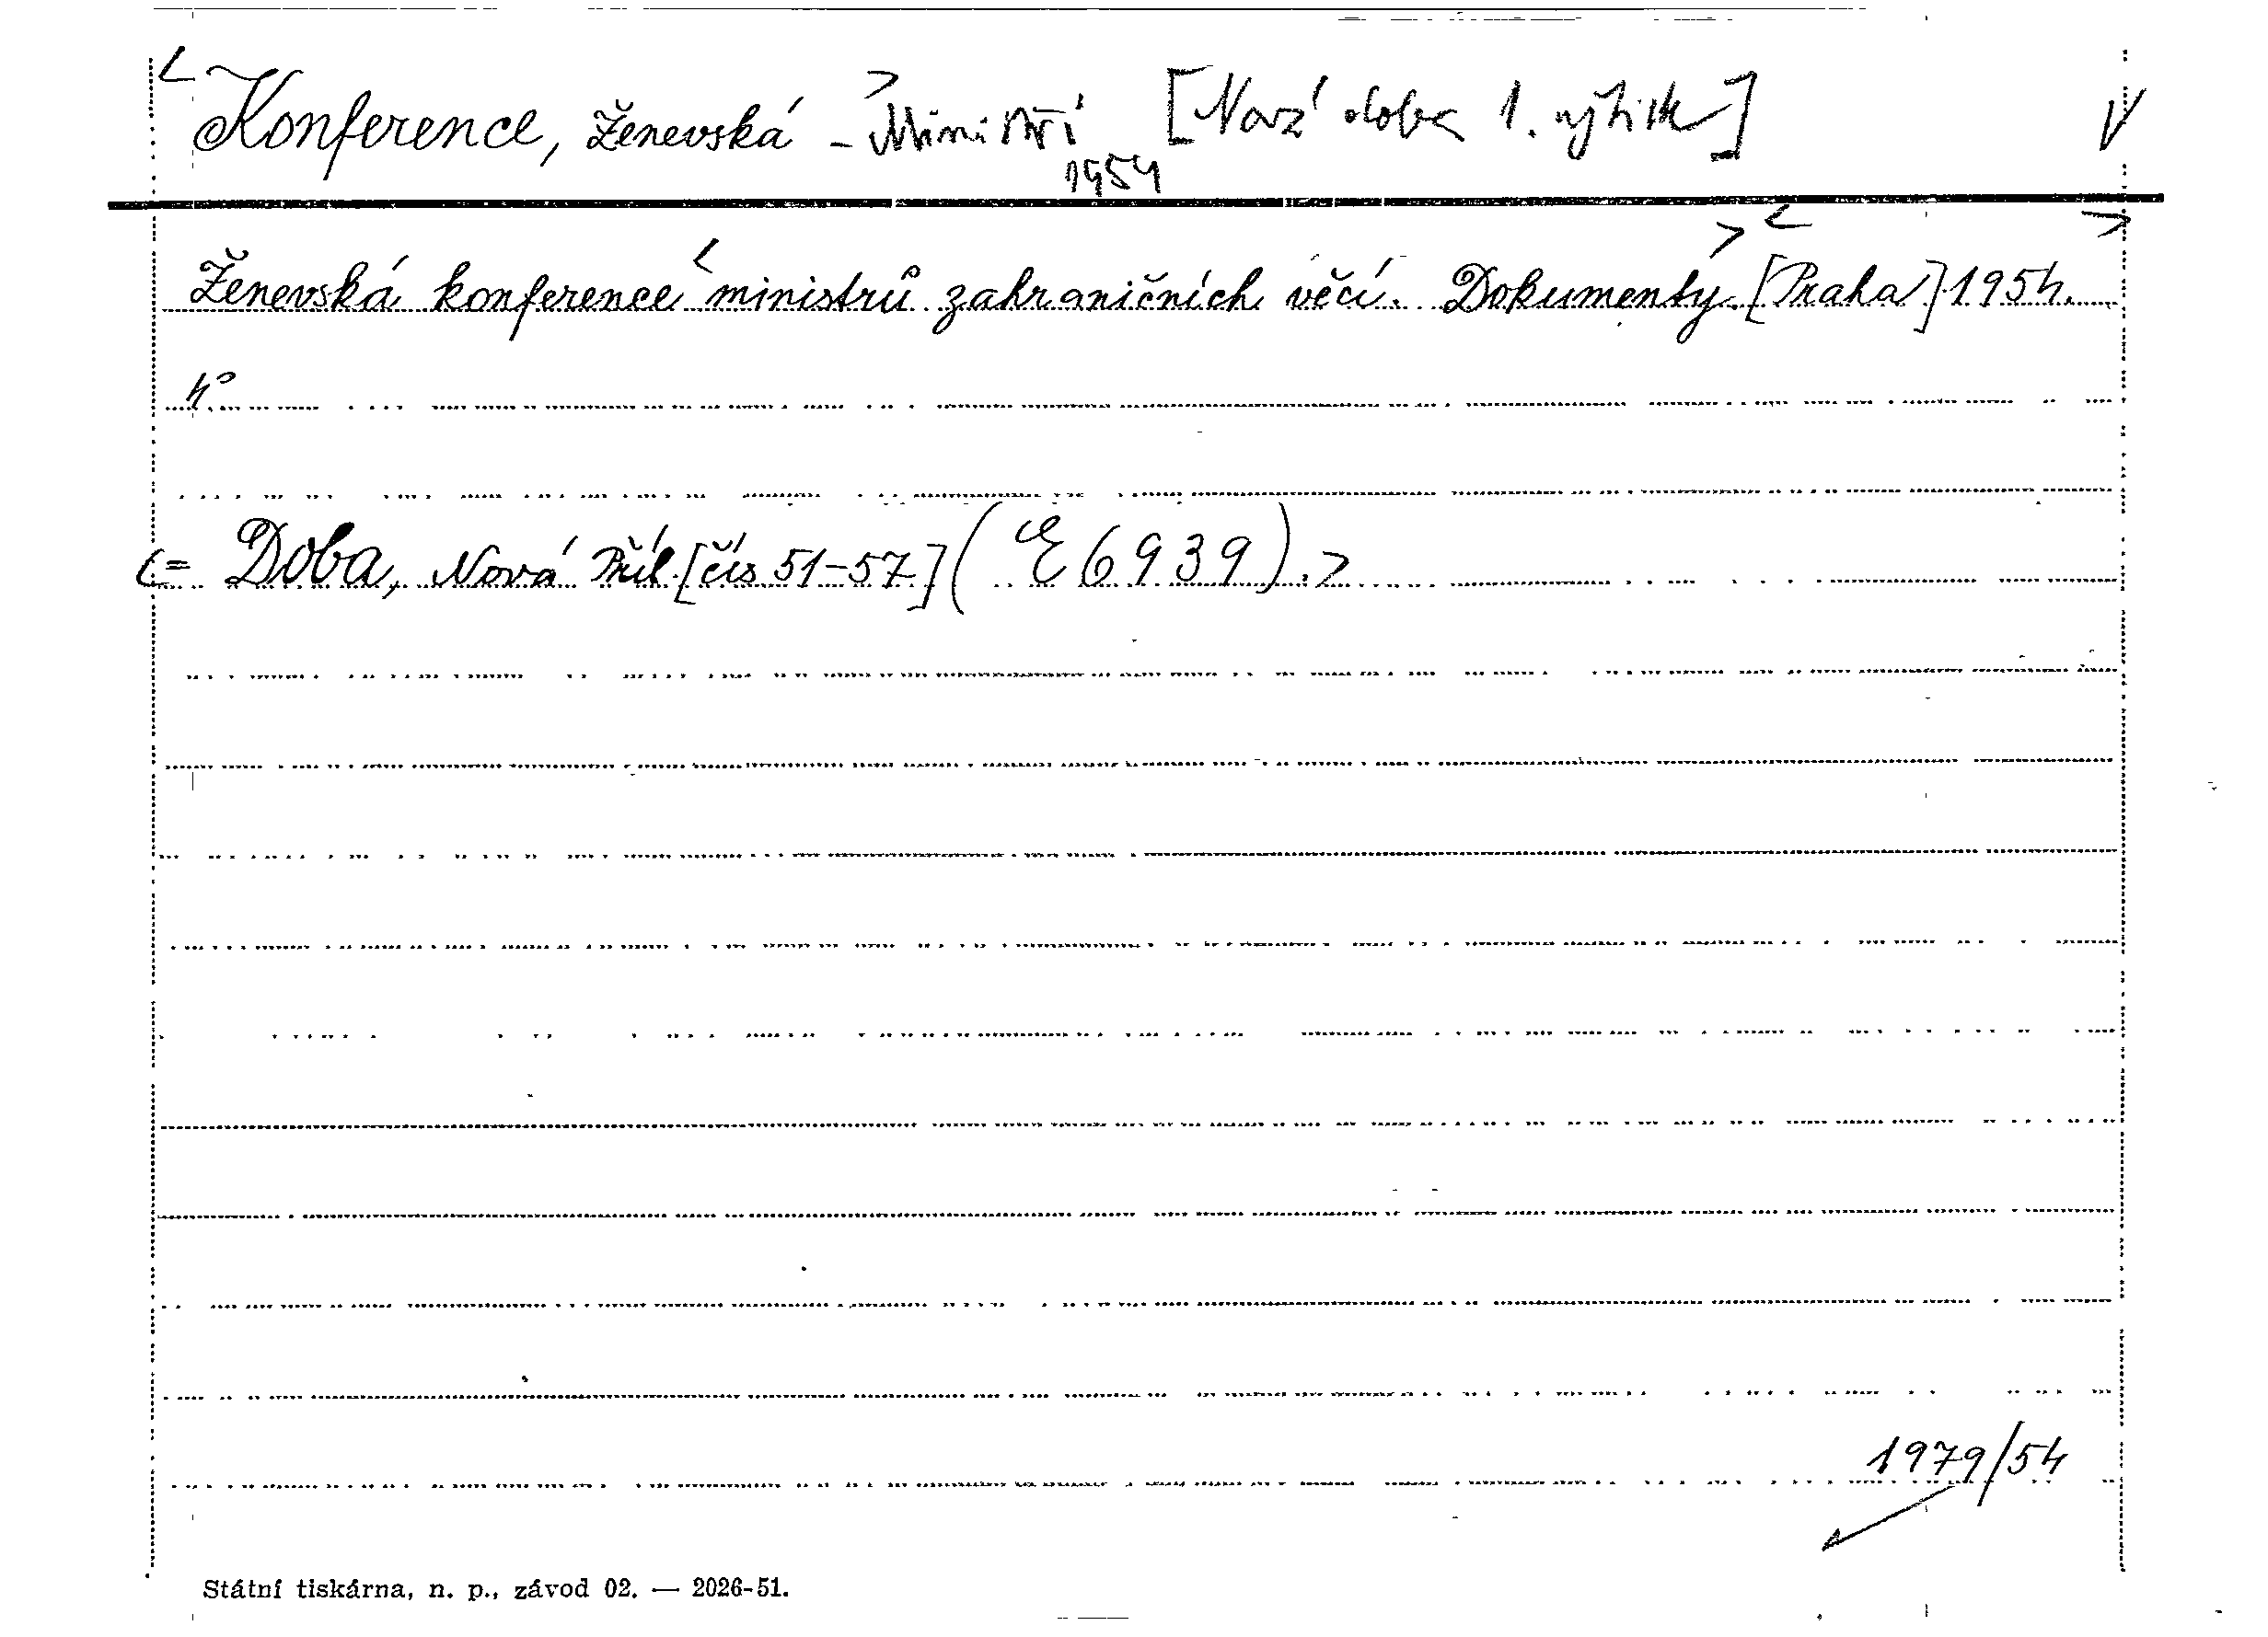 < Konference, Ženevská - > Ministři [Nová doba 1. výtisk] V
1954
Ženevská konference < ministrů zahraničních věcí. Dokumenty. > < [Praha] 1954. >
4°
<= Doba, Nová Příl. [čís. 51-57] (E 6939). >
1979/54
Státní tiskárna, n. p., závod 02. — 2026-51.